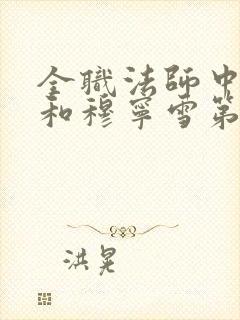 全職法師中
和穆寧雪第
洪晃